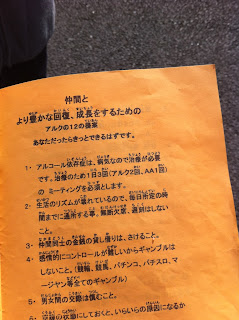 仲間と
より豊かな回復、成長をするための
アルクの12の提案
あなただったらきっとできるはずです。
1・アルコール依存症は、病気なので治療が必要
です。治療のため1日3回(アルク2回、AA1回)
の ミーティングを必須とします。
2・生活のリズムが壊れているので、毎日所定の時
間までに通所する事、無断欠席、遅刻はしない
こと。
3・仲間同士の金銭の貸し借りは、さけること。
4・感情的にコントロールが難しいからギャンブルは
しないこと。(競輪、競馬、パチンコ、パチスロ、マ
ージャン等全てのギャンブル)
5・男女間の交際は慎むこと。
の状態にしておくと、いらいらの原因になるか